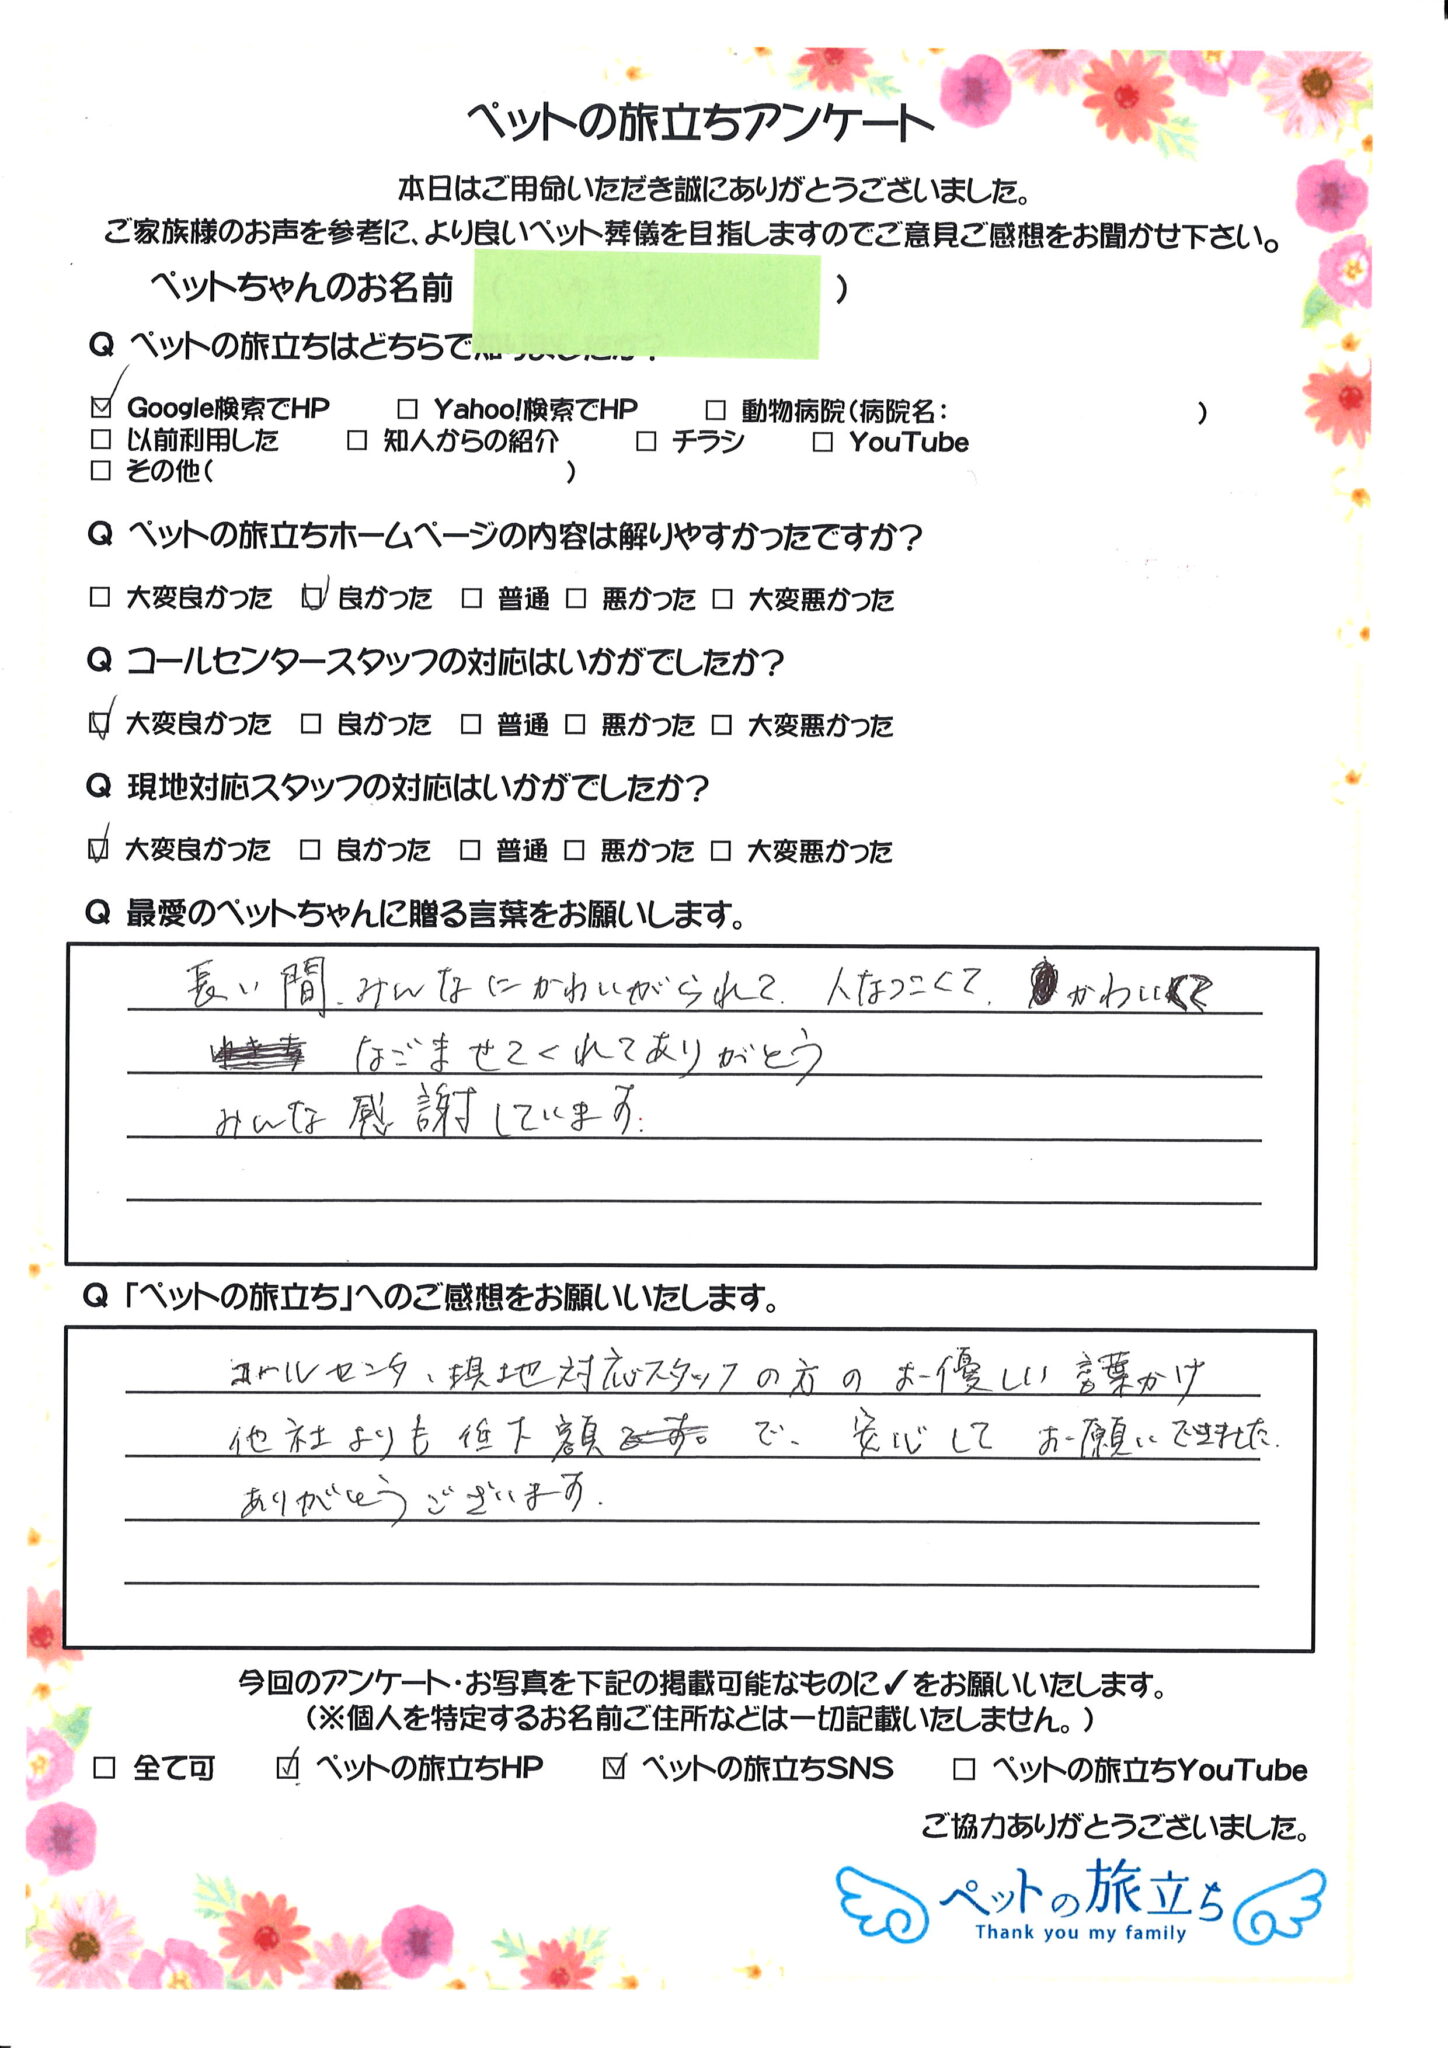 ペットの旅立ちアンケート
本日はご用命いただき誠にありがとうございました。
ご家族様のお声を参考に、より良いペット葬儀を目指しますのでご意見ご感想をお聞かせ下さい。
ペットちゃんのお名前 ( )
Q ペットの旅立ちはどちらで知りましたか?
☑ Google検索でHP □ Yahoo!検索でHP □ 動物病院(病院名: )
□ 以前利用した □ 知人からの紹介 □ チラシ □ YouTube
□ その他( )
Q ペットの旅立ちホームページの内容は解りやすかったですか?
□ 大変良かった ☑ 良かった □ 普通 □ 悪かった □ 大変悪かった
Q コールセンタースタッフの対応はいかがでしたか?
☑ 大変良かった □ 良かった □ 普通 □ 悪かった □ 大変悪かった
Q 現地対応スタッフの対応はいかがでしたか?
☑ 大変良かった □ 良かった □ 普通 □ 悪かった □ 大変悪かった
Q 最愛のペットちゃんに贈る言葉をお願いします。
長い間、みんなにかわいがられて、人なつこくて、かわいくて
なごませてくれてありがとう
みんな感謝しています。
Q 「ペットの旅立ち」へのご感想をお願いいたします。
コールセンタ、現地対応スタッフの方のお優しい言葉かけ
他社よりも低下額で、安心してお願いできました。
ありがとうございます。
今回のアンケート・お写真を下記の掲載可能なものに✓をお願いいたします。
(※個人を特定するお名前ご住所などは一切記載いたしません。)
□ 全て可 ☑ ペットの旅立ちHP ☑ ペットの旅立ちSNS □ ペットの旅立ちYouTube
ご協力ありがとうございました。
ペットの旅立ち
Thank you my family